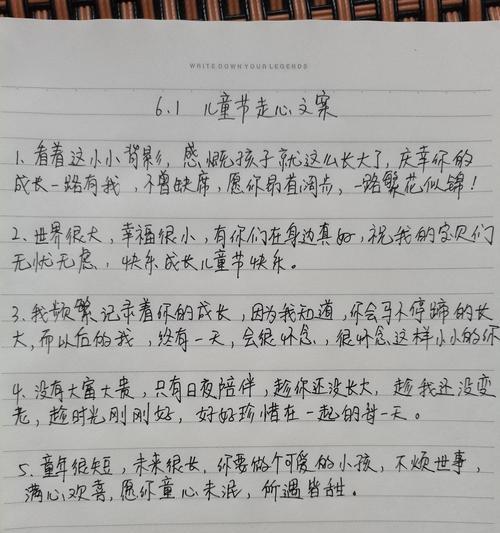 WRITE DOWN YOUR LEGENDS
6.1 儿童节走心文案
1. 看着这小小背影，感慨孩子就这么长大了，庆幸你的
成长一路有我，不曾缺席，愿你昂首阔步，一路繁花似锦！
2. 世界很大，幸福很小，有你们在身边真好，祝我的宝贝们
无忧无虑，快乐成长儿童节快乐。
3. 我频繁记录着你的成长，因为我知道，你会马不停蹄的长
大，而以后的我，终有一天，会很怀念，很怀念这样小小的你
4. 没有大富大贵，只有日夜陪伴，趁你还没长大，趁我还没变
老，趁时光刚刚好，好好珍惜在一起的每一天。
5. 童年很短，未来很长，你要做个可爱的小孩，不烦世事，
满心欢喜，愿你童心未泯，所遇皆甜。